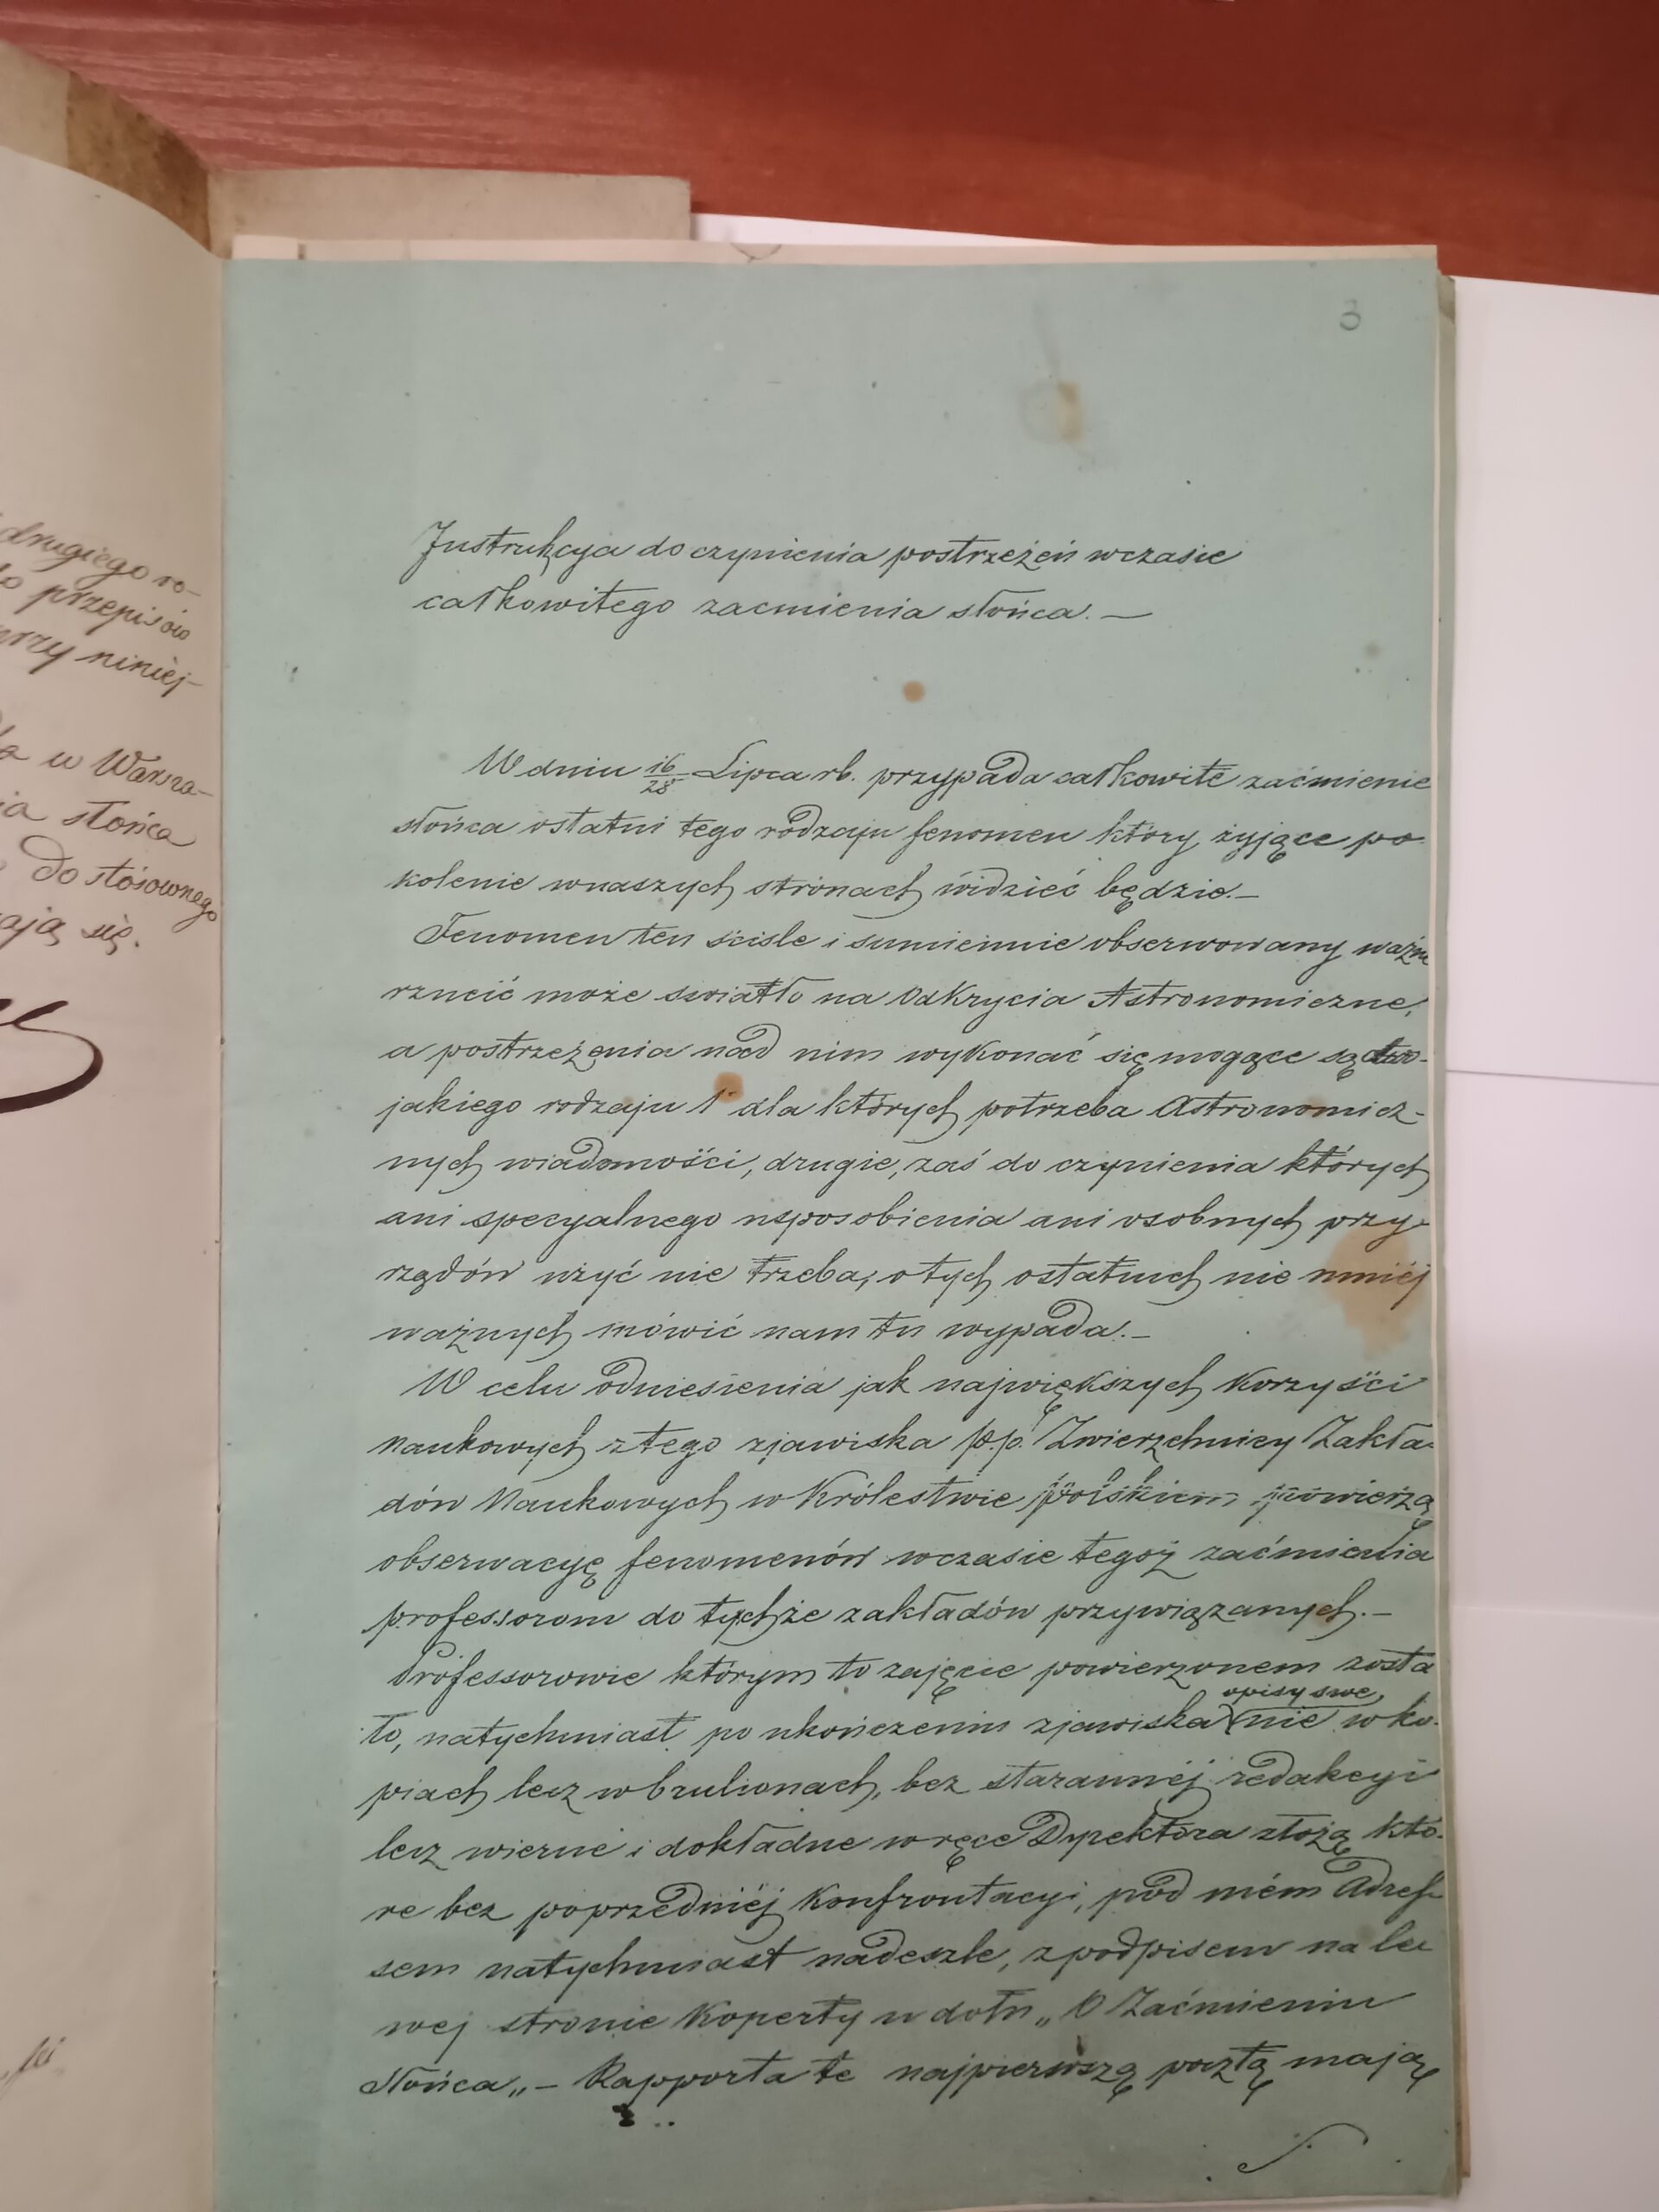 drugiego ro-
przepisów
przy niniej-
w Warsza-
słońca
do stósownego
ają się.
3
Instrukcya do czynienia postrzeżeń wczasie
całkowitego zacmienia słońca. —
W dniu 16/28 Lipca rb. przypada całkowite zaćmienie
słońca ostatni tego rodzaju fenomen który żyjące po
kolenie wnaszych stronach widzieć będzie. —
Fenomen ten ściśle i sumiennie obserwowany ważne
rzucić może swiatło na odkrycia Astronomiczne,
a postrzeżenia nad nim wykonać się mogące są dwo-
jakiego rodzaju 1° dla których potrzeba Astronomicz-
nych wiadomości, drugie, zaś do czynienia których
ani specyalnego usposobienia ani osobnych przy-
rządów użyć nie trzeba, o tych ostatnich nie mniéj
ważnych mówić nam tu wypada. —
W celu odniesienia jak największych korzyści
Naukowych z tego zjawiska p.p. Zwierzchnicy Zakła-
dów Naukowych w Królestwie polskiem powierzą
obserwacyę fenomenów wczasie tegoż zaćmienia
professorom do tychże zakładów przywiązanych. —
Professorowie którym to zajęcie powierzonem zosta
ło, natychmiast po ukończeniu zjawiska opisy swe, nie w ko-
piach lecz w brulionach, bez starannéj redakcyi
lecz wierne i dokładne w ręce Dyrektora złożą któ-
re bez poprzedniéj konfrontacyi, pod mém Adres-
sem natychmiast nadeszle, z podpisem na le
wej stronie koperty u dołu „O Zaćmieniu
słońca„ — Rapporta te najpierwszą pocztą mają